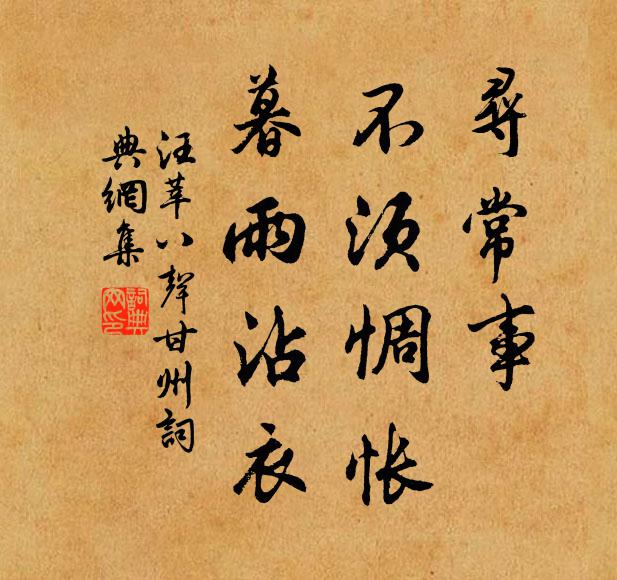 尋常事
不須惆悵
暮雨沾衣
汪莘八聲甘州詞
典網集
詞典網印